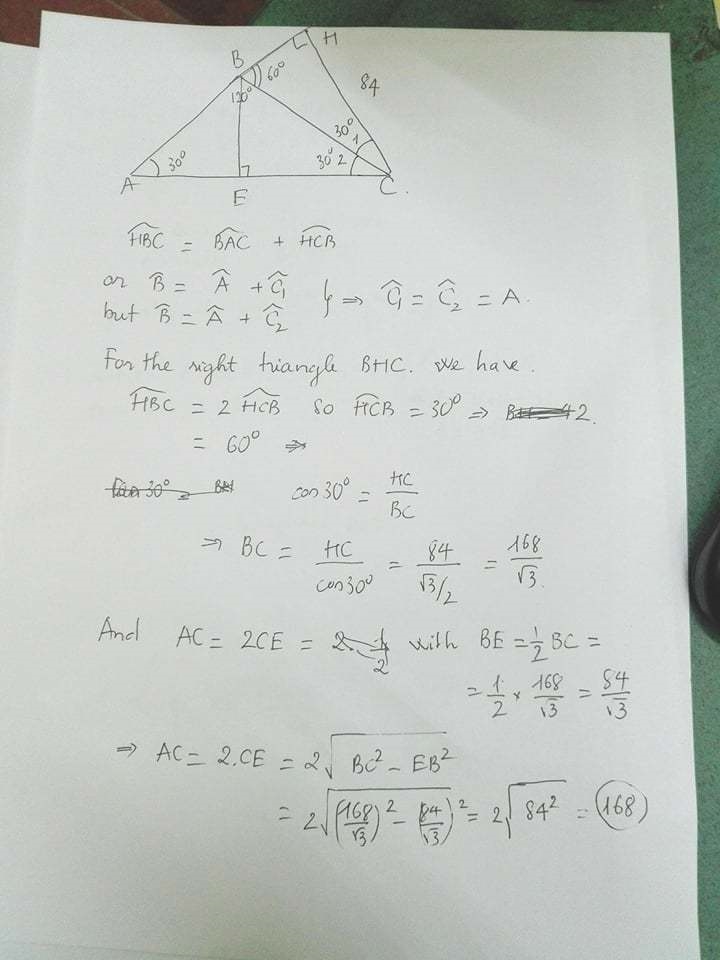 H
B
60°
84
120°
30° 1
30°
30° 2
A
E
C.
HBC = BAC + HCB
or B̂ = Â + Ĉ₁
but B̂ = Â + Ĉ₂ } ⇒ Ĉ₁ = Ĉ₂ = A.
For the right triangle BHC. We have.
HBC = 2 HCB so HCB = 30° ⇒ BH = 42.
= 60° ⇒
cos 30° = HC/BC
⇒ BC = HC/cos30° = 84/(√3/2) = 168/√3.
And AC = 2CE = 2. 1/2 with BE = 1/2 BC =
= 1/2 × 168/√3 = 84/√3
⇒ AC = 2.CE = 2√(BC² - EB²)
= 2√((168/√3)² - (84/√3)²) = 2√(84²) = 168